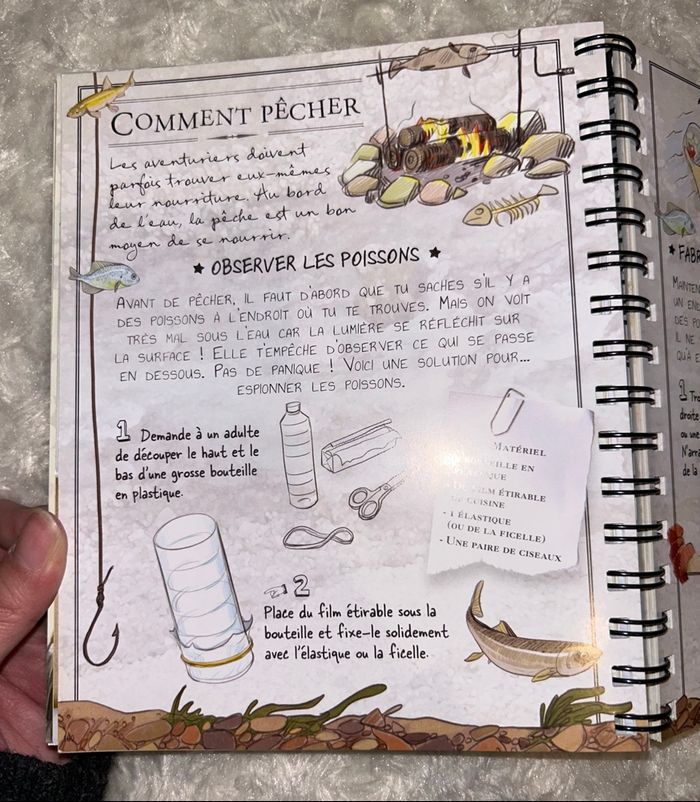 COMMENT PÊCHER
Les aventuriers doivent
parfois trouver eux-mêmes
leur nourriture. Au bord
de l'eau, la pêche est un bon
moyen de se nourrir.
★ OBSERVER LES POISSONS ★
AVANT DE PÊCHER, IL FAUT D'ABORD QUE TU SACHES S'IL Y A
DES POISSONS À L'ENDROIT OÙ TU TE TROUVES. MAIS ON VOIT
TRÈS MAL SOUS L'EAU CAR LA LUMIÈRE SE RÉFLÉCHIT SUR
LA SURFACE ! ELLE T'EMPÊCHE D'OBSERVER CE QUI SE PASSE
EN DESSOUS. PAS DE PANIQUE ! VOICI UNE SOLUTION POUR...
ESPIONNER LES POISSONS.
1 Demande à un adulte
de découper le haut et le
bas d'une grosse bouteille
en plastique.
MATÉRIEL
EN
FILM ÉTIRABLE
CUISINE
- 1 ÉLASTIQUE
(OU DE LA FICELLE)
- UNE PAIRE DE CISEAUX
2
Place du film étirable sous la
bouteille et fixe-le solidement
avec l'élastique ou la ficelle.
★ FABR
MAINTEN
UN EN
DES PO
IL NE
QU'À E
1 Tro
droite
ou une
N'arra
de la